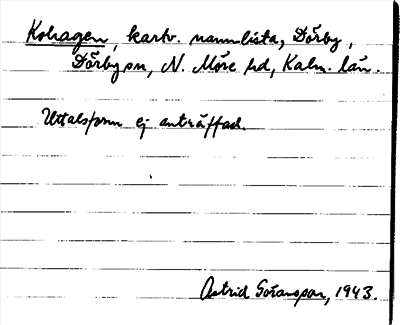 Kohagen, kartv. namnlista, Dörby,
Dörby sn, N. Möre hd, Kalm. län.
Uttalsform ej anträffad.
Astrid Göransson, 1943.